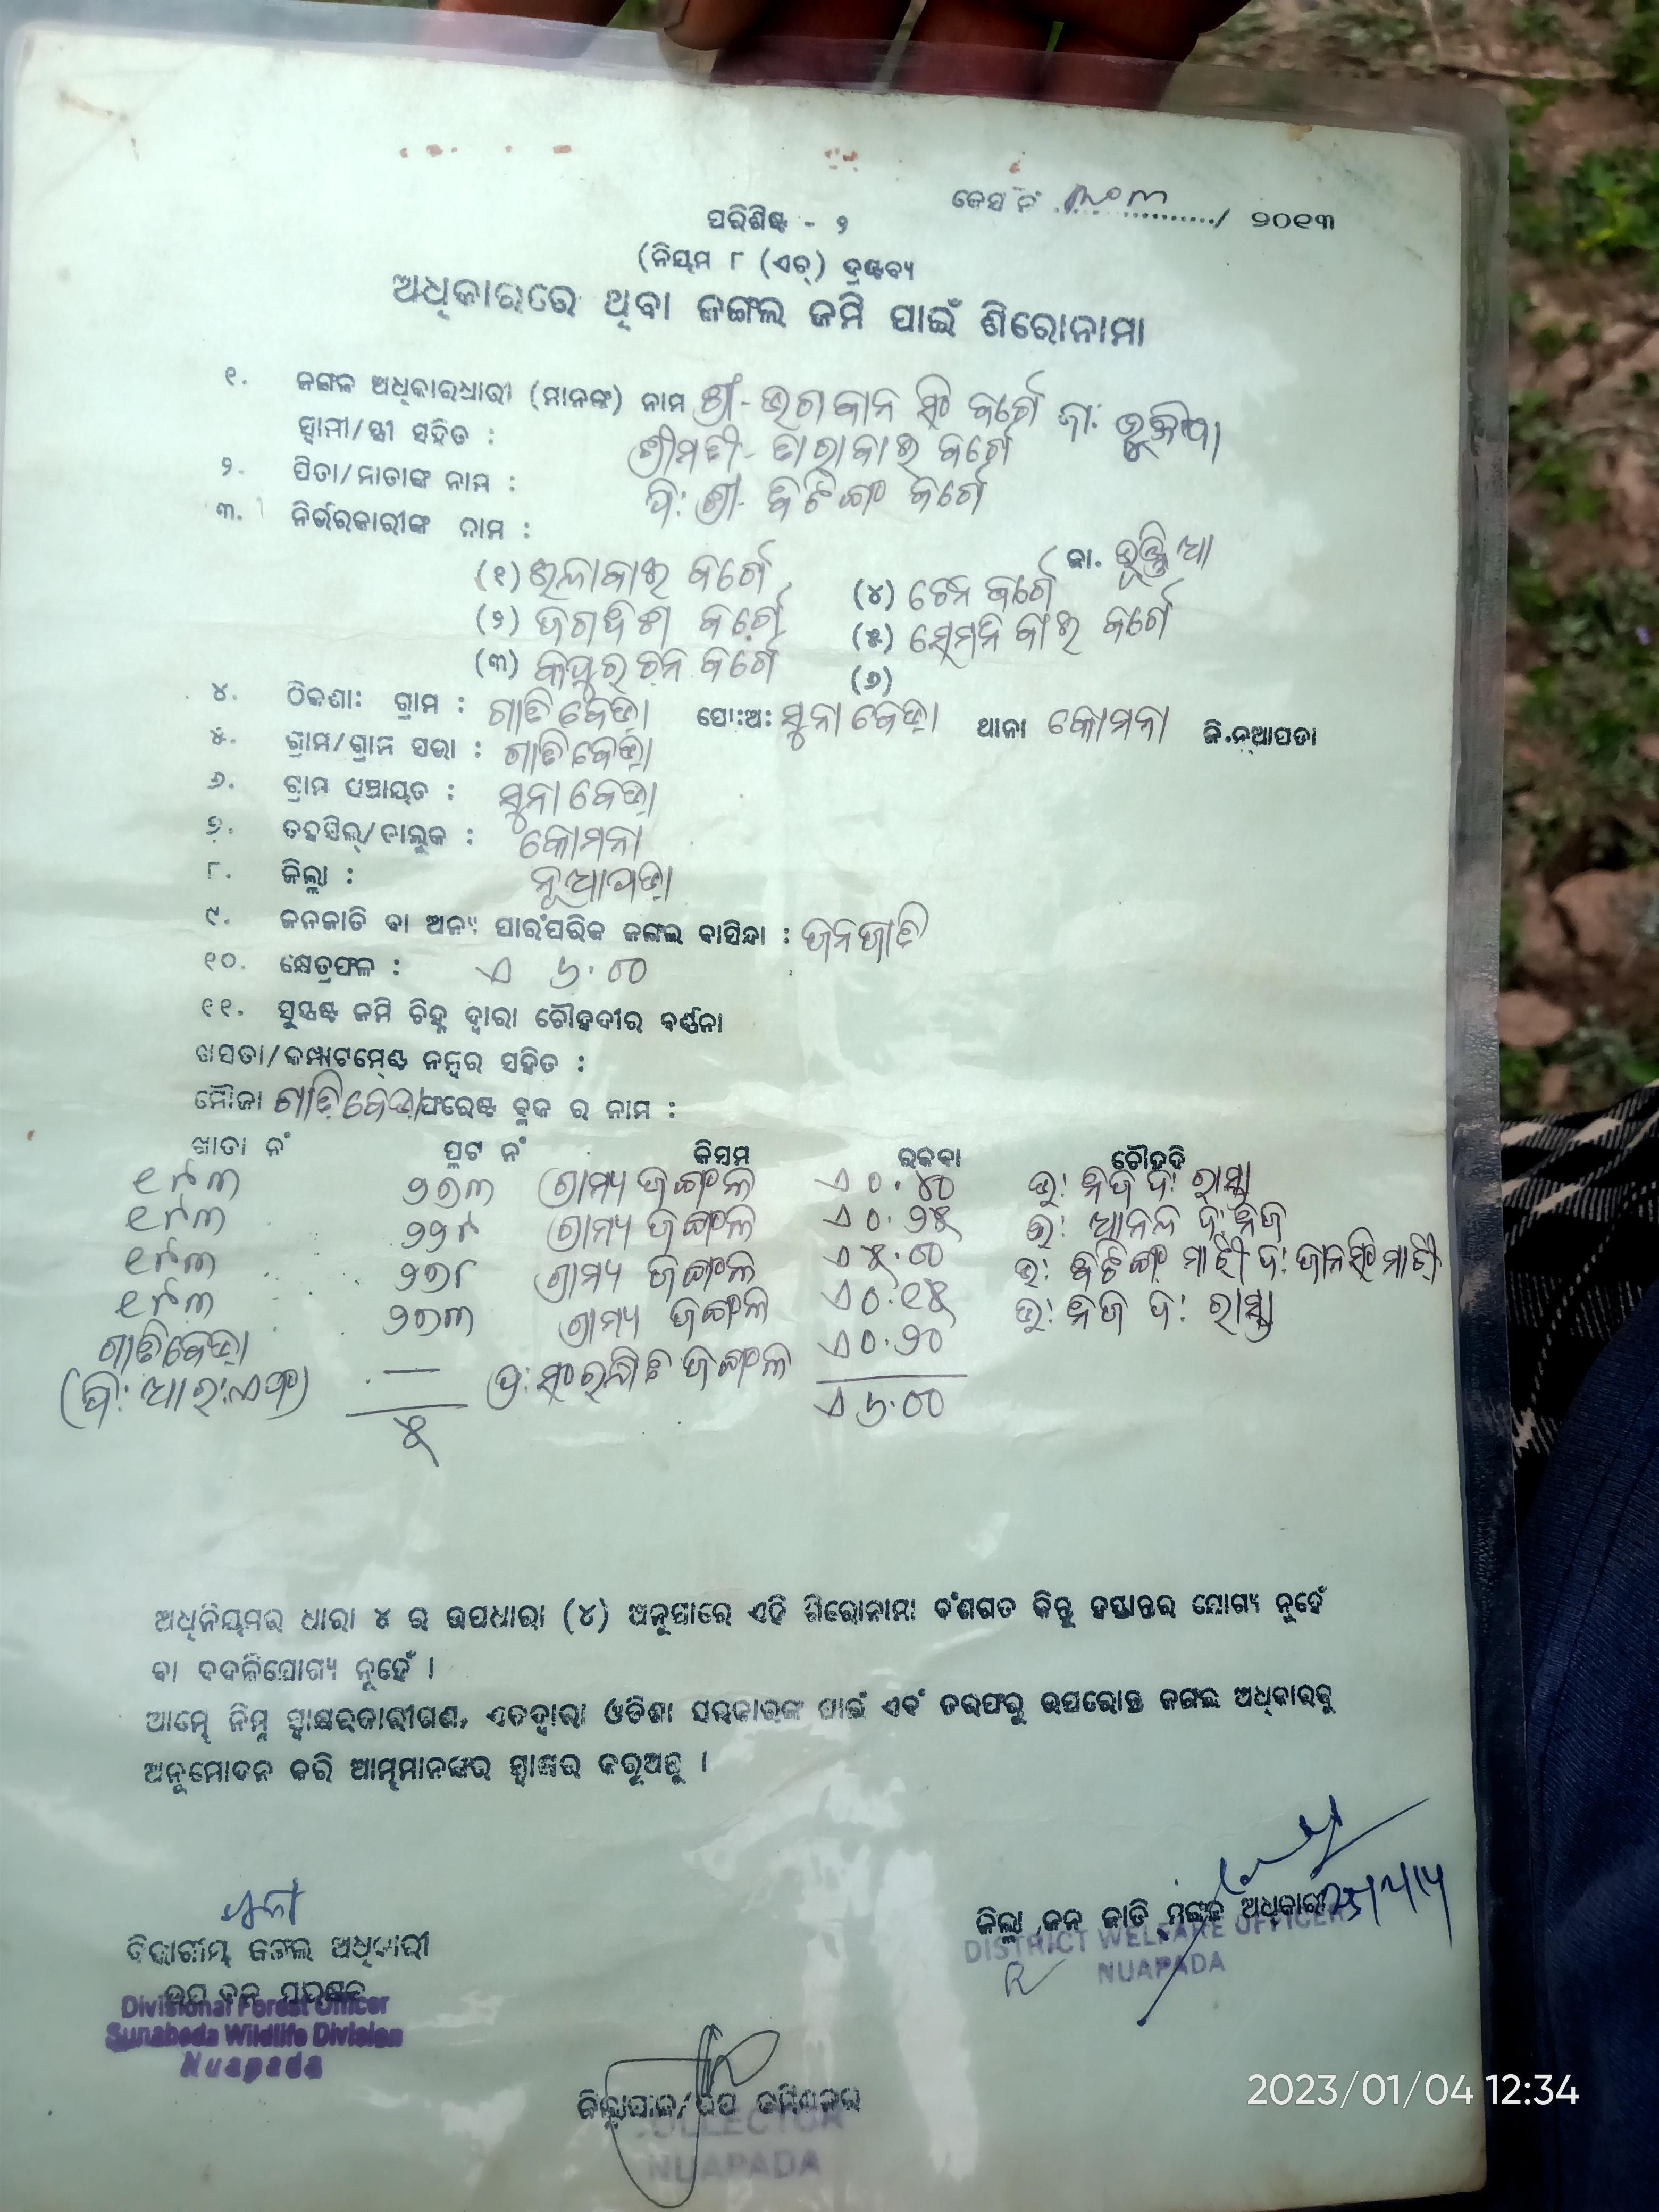 କେସ ନଂ ............../ ୨୦୧୩
ପରିଶିଷ୍ଟ - ୨
(ନିୟମ ୮ (ଏଚ୍) ଦ୍ରଷ୍ଟବ୍ୟ
ଅଧିକାରରେ ଥିବା ଜଙ୍ଗଲ ଜମି ପାଇଁ ଶିରୋନାମା
୧. ଜଙ୍ଗଳ ଅଧିକାରଧାରୀ (ମାନଙ୍କ) ନାମ ଶ୍ରୀ - ଭଗବାନ ସିଂ ବର୍ଗେ ଜା:
ସ୍ୱାମୀ/ସ୍ତ୍ରୀ ସହିତ : ଶ୍ରୀମତୀ - ତାରାବାଇ ବର୍ଗେ
୨. ପିତା/ମାତାଙ୍କ ନାମ : ପି: ଶ୍ରୀ - ବର୍ଗେ
୩. ନିର୍ଭରକାରୀଙ୍କ ନାମ : ଜା.
(୧) ବର୍ଗେ (୪) ଚେନ ବର୍ଗେ
(୨) ବର୍ଗେ (୫) ବାଇ ବର୍ଗେ
(୩) ବର୍ଗେ (୬)
୪. ଠିକଣା: ଗ୍ରାମ : ଗାତିବେଡ଼ା ପୋ:ଅ: ସୁନାବେଡ଼ା ଥାନା କୋମନା ଜି.ନୂଆପଡା
୫. ଗ୍ରାମ/ଗ୍ରାମ ସଭା : ଗାତିବେଡ଼ା
୬. ଗ୍ରାମ ପଞ୍ଚାୟତ : ସୁନାବେଡ଼ା
୭. ତହସିଲ୍/ତାଲୁକ : କୋମନା
୮. ଜିଲ୍ଲା : ନୂଆପଡା
୯. ଜନଜାତି ବା ଅନ୍ୟ ପାରଂପରିକ ଜଙ୍ଗଲ ବାସିନ୍ଦା : ଜନଜାତି
୧୦. କ୍ଷେତ୍ରଫଳ : ଏ ୬.୦୦
୧୧. ସୁସ୍ପଷ୍ଟ ଜମି ଚିହ୍ନ ଦ୍ୱାରା ଚୌହଦୀର ବର୍ଣ୍ଣନା
ଖସଡା/କମ୍ପାଟମେଣ୍ଟ ନମ୍ବର ସହିତ :
ମୌଜା ଗାତିବେଡ଼ା ଫରେଷ୍ଟ ବ୍ଲକ ର ନାମ :
ଖାତା ନଂ ପ୍ଲଟ ନଂ କିସମ ରକବା ଚୌହଦି
୧୯୩ ୨୭୩ ଗ୍ରାମ୍ୟ ଜଙ୍ଗଲ ଏ ୦.୪୦ ଉ: ନିଜ ଦ: ରାସ୍ତା
୧୯୩ ୨୨୯ ଗ୍ରାମ୍ୟ ଜଙ୍ଗଲ ଏ ୦.୨୫ ଉ: ଆନନ୍ଦ ଦ: ନିଜ
୧୯୩ ୨୭୮ ଗ୍ରାମ୍ୟ ଜଙ୍ଗଲ ଏ ୫.୦୦ ଉ: ମାଝୀ ଦ: ମାଝୀ
୧୯୩ ୨୭୩ ଗ୍ରାମ୍ୟ ଜଙ୍ଗଲ ଏ ୦.୧୫ ଉ: ନିଜ ଦ: ରାସ୍ତା
ଗାତିବେଡ଼ା — ପ୍ର: ସଂରକ୍ଷିତ ଜଙ୍ଗଲ ଏ ୦.୨୦
(ପି: ଆର:ଏଫ) ୫ ଏ ୬.୦୦
ଅଧିନିୟମର ଧାରା ୪ ର ଉପଧାରା (୪) ଅନୁସାରେ ଏହି ଶିରୋନାମା ବଂଶଗତ କିନ୍ତୁ ହସ୍ତାନ୍ତର ଯୋଗ୍ୟ ନୁହେଁ
ବା ବଦଳିଯୋଗ୍ୟ ନୁହେଁ ।
ଆମ୍ଭେ ନିମ୍ନ ସ୍ୱାକ୍ଷରକାରୀଗଣ, ଏତଦ୍ୱାରା ଓଡିଶା ସରକାରଙ୍କ ପାଇଁ ଏବଂ ତରଫରୁ ଉପରୋକ୍ତ ଜଙ୍ଗଲ ଅଧିକାରକୁ
ଅନୁମୋଦନ କରି ଆମ୍ଭମାନଙ୍କର ସ୍ୱାକ୍ଷର କରୁଅଛୁ ।
ଜିଲ୍ଲା ଜନ ଜାତି ମଙ୍ଗଳ ଅଧିକାରୀ
DISTRICT WELFARE OFFICER
NUAPADA
ବିଭାଗୀୟ ଜଙ୍ଗଲ ଅଧିକାରୀ
Divisional Forest Officer
Sunabeda Wildlife Division
Nuapada
ଜିଲ୍ଲାପାଳ/ଉପ କମିଶନର
COLLECTOR
NUAPADA
2023/01/04 12:34